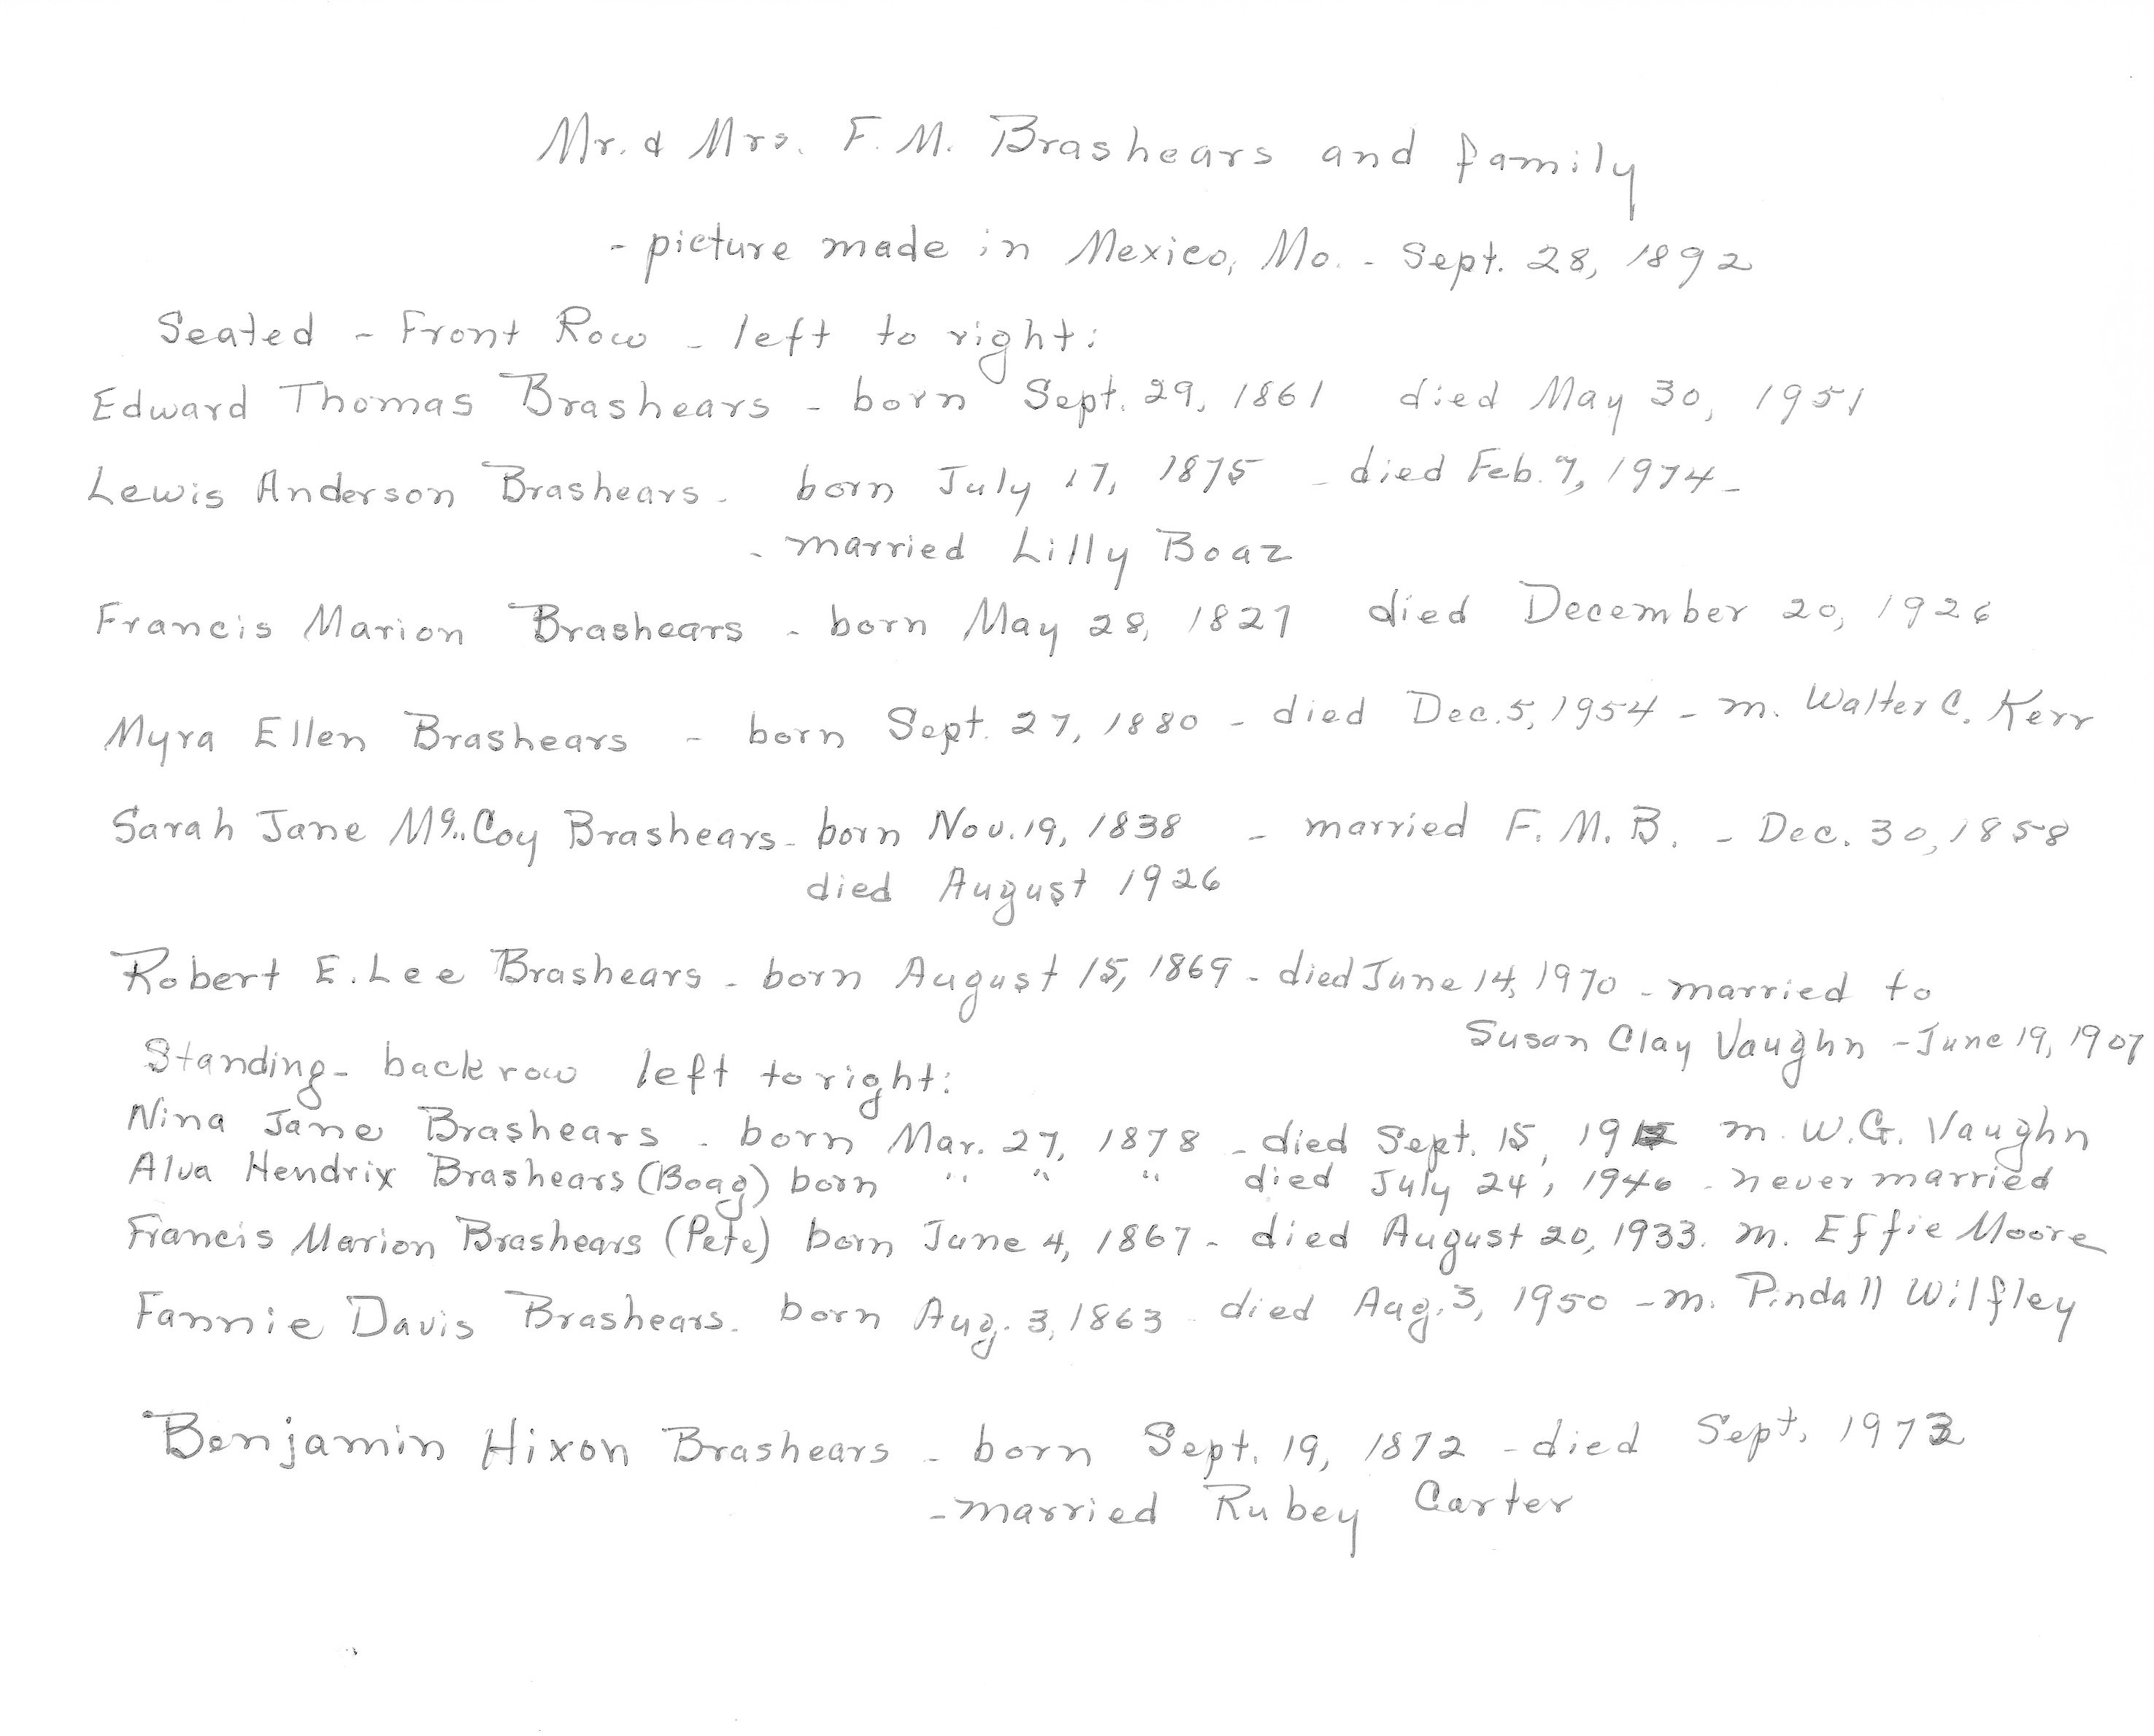 Mr. & Mrs. F. M. Brashears and family
- picture made in Mexico, Mo. - Sept. 28, 1892
Seated - Front Row - left to right:
Edward Thomas Brashears - born Sept. 29, 1861 died May 30, 1951
Lewis Anderson Brashears - born July 17, 1875 - died Feb. 7, 1974 -
- married Lilly Boaz
Francis Marion Brashears - born May 28, 1827 died December 20, 1926
Myra Ellen Brashears - born Sept. 27, 1880 - died Dec. 5, 1954 - m. Walter C. Kerr
Sarah Jane McCoy Brashears - born Nov. 19, 1838 - married F. M. B. - Dec. 30, 1858
died August 1926
Robert E. Lee Brashears - born August 15, 1869 - died June 14, 1970 - married to
Susan Clay Vaughn - June 19, 1907
Standing - back row left to right:
Nina Jane Brashears - born Mar. 27, 1878 - died Sept. 15, m. W. G. Vaughn
Alva Hendrix Brashears (Boag) born " " " died July 24, 1946 - never married
Francis Marion Brashears (Pete) born June 4, 1867 - died August 20, 1933. m. Effie Moore
Fannie Davis Brashears - born Aug. 3, 1863 - died Aug. 3, 1950 - m. Pindall Wilfley
Benjamin Hixon Brashears - born Sept. 19, 1872 - died Sept. 1973
- married Rubey Carter